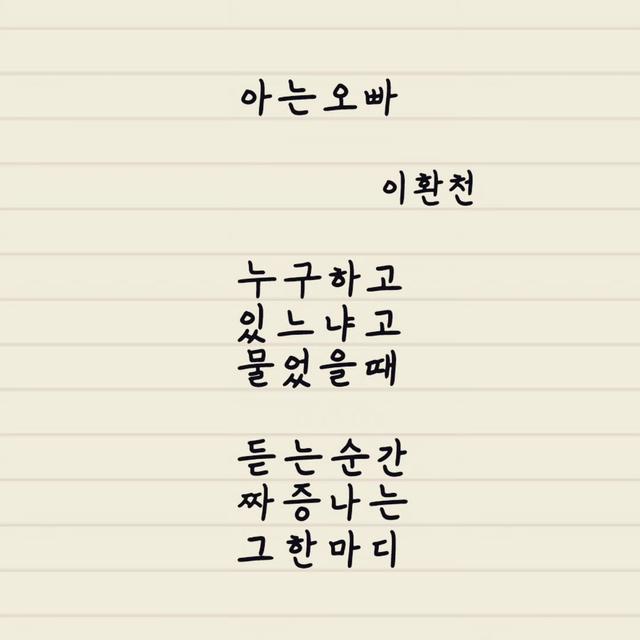 아는오빠
이환천
누구하고
있느냐고
물었을때
듣는순간
짜증나는
그한마디